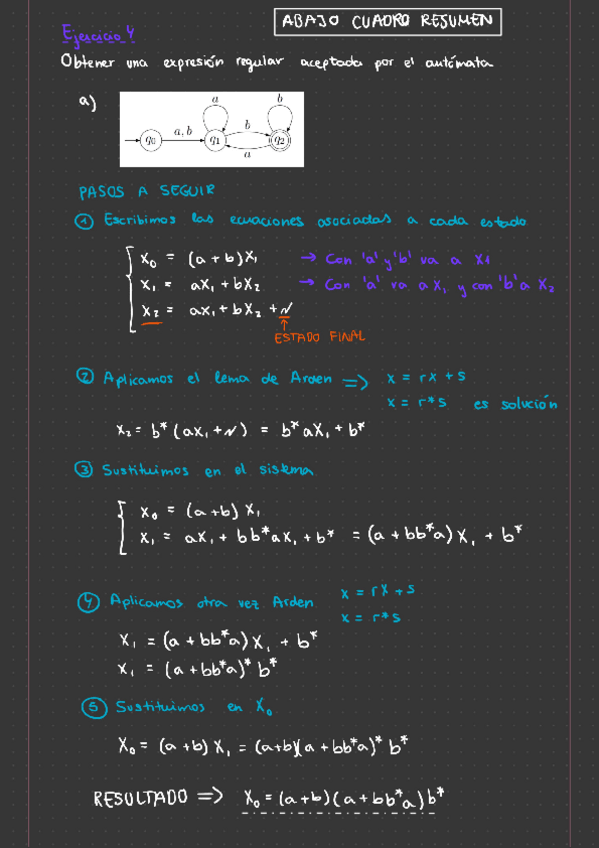 ABAJO CUADRO RESUMEN
Ejercicio 4
Obtener una expresión regular aceptada por el autómata
a)
a b
q0 a, b q1 b q2
a
PASOS A SEGUIR
① Escribimos las ecuaciones asociadas a cada estado
X0 = (a + b)X1 → Con 'a' y 'b' va a X1
X1 = aX1 + bX2 → Con 'a' va a X1 y con 'b' a X2
X2 = aX1 + bX2 + Λ
ESTADO FINAL
② Aplicamos el lema de Arden => x = rx + s
x = r*s es solución
X2 = b*(aX1 + Λ) = b*aX1 + b*
③ Sustituimos en el sistema
X0 = (a + b) X1
X1 = aX1 + bb*aX1 + b* = (a + bb*a) X1 + b*
④ Aplicamos otra vez Arden x = rx + s
x = r*s
X1 = (a + bb*a) X1 + b*
X1 = (a + bb*a)* b*
⑤ Sustituimos en X0
X0 = (a + b) X1 = (a+b)(a + bb*a)* b*
RESULTADO => X0 = (a + b)(a + bb*a)b*